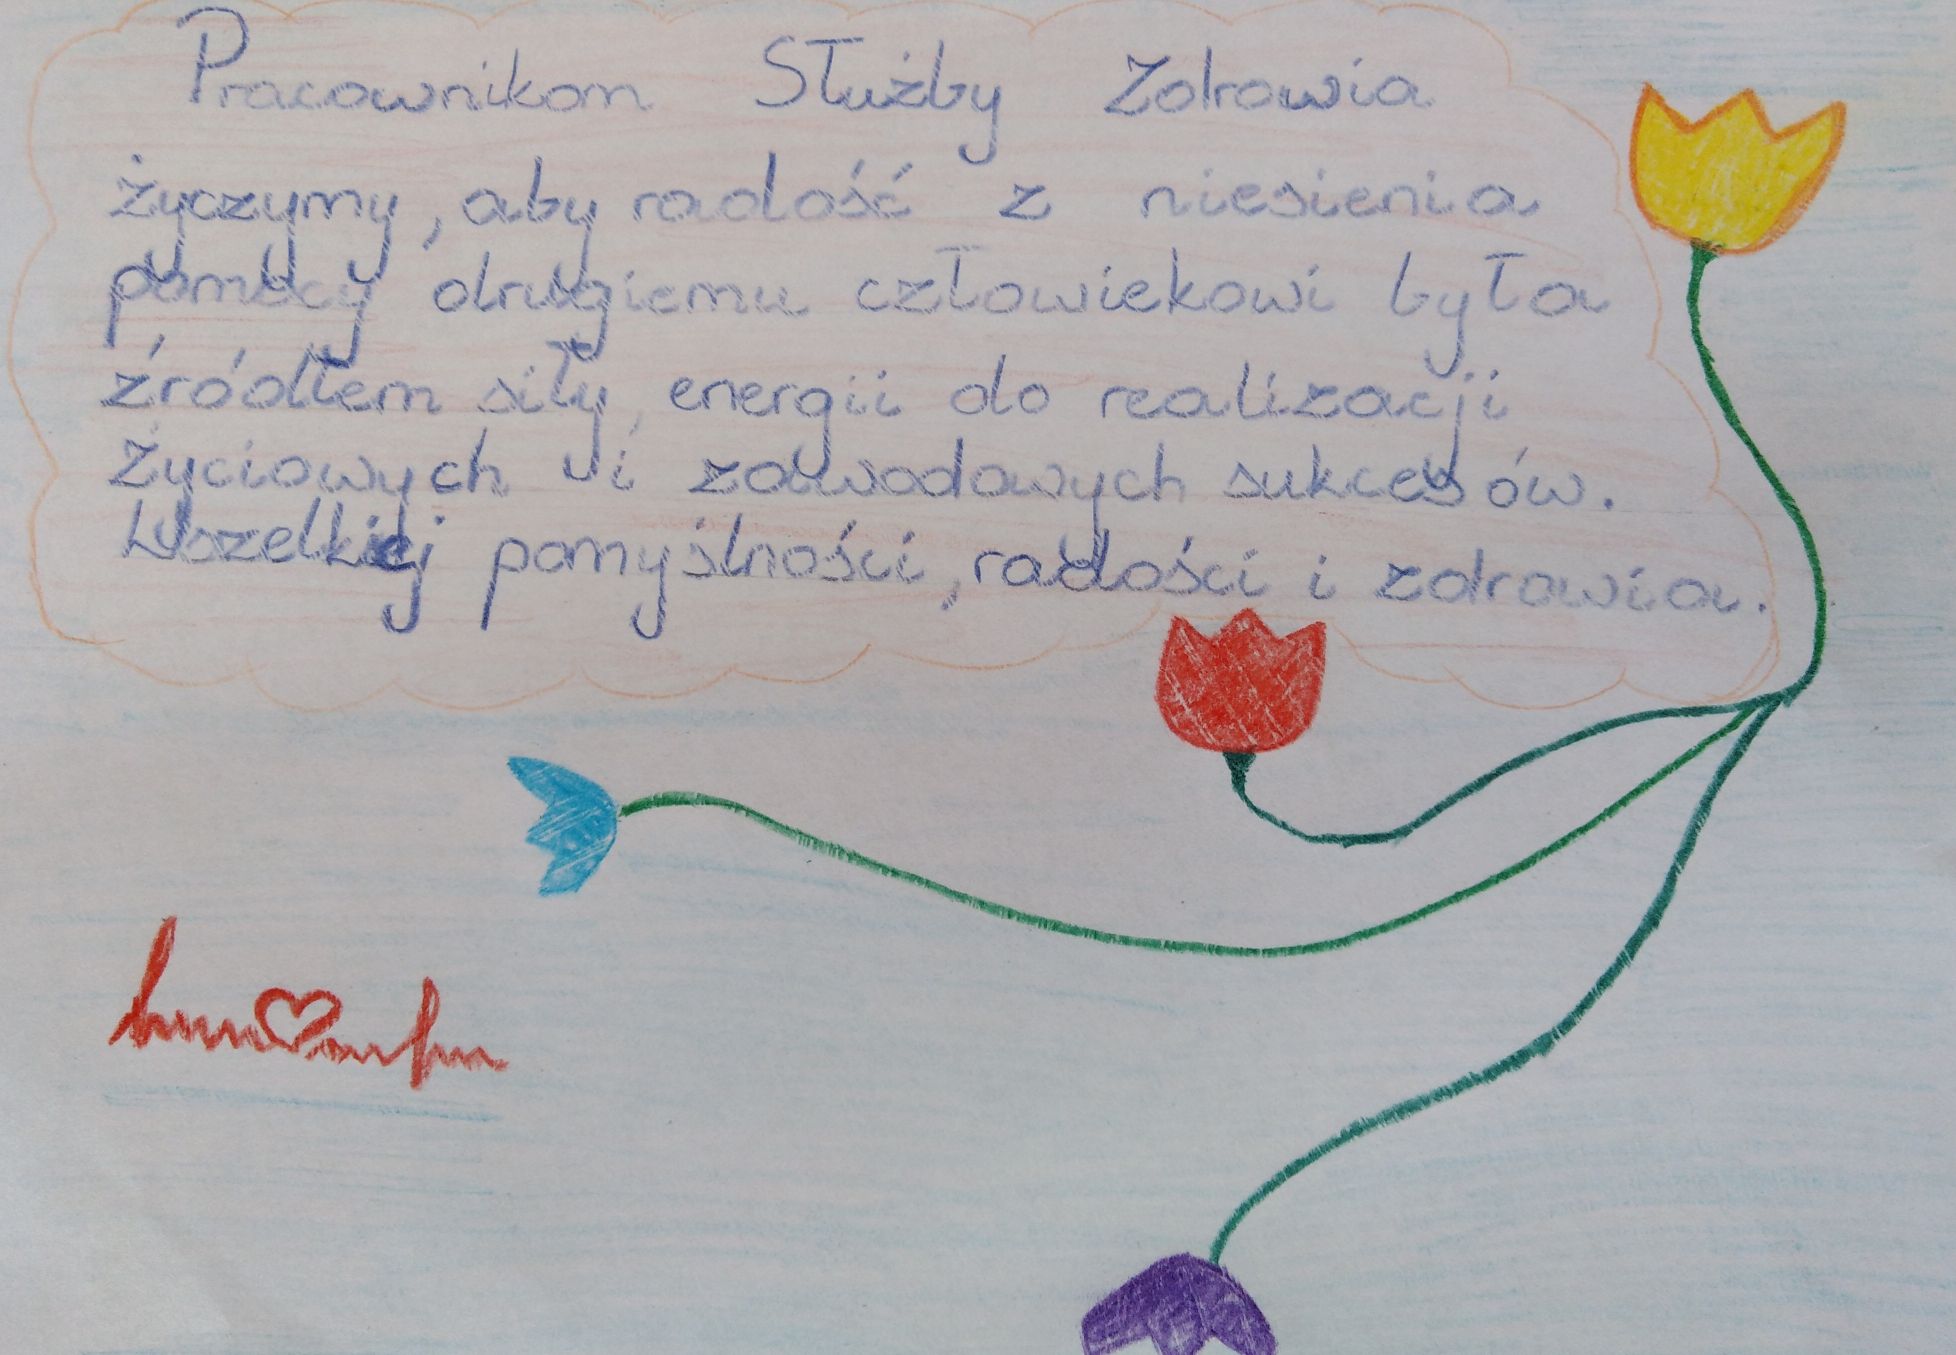 Pracownikom Służby Zdrowia
życzymy, aby radość z niesienia
pomocy drugiemu człowiekowi była
źródłem siły, energii do realizacji
życiowych i zawodowych sukcesów.
Wszelkiej pomyślności, radości i zdrowia.